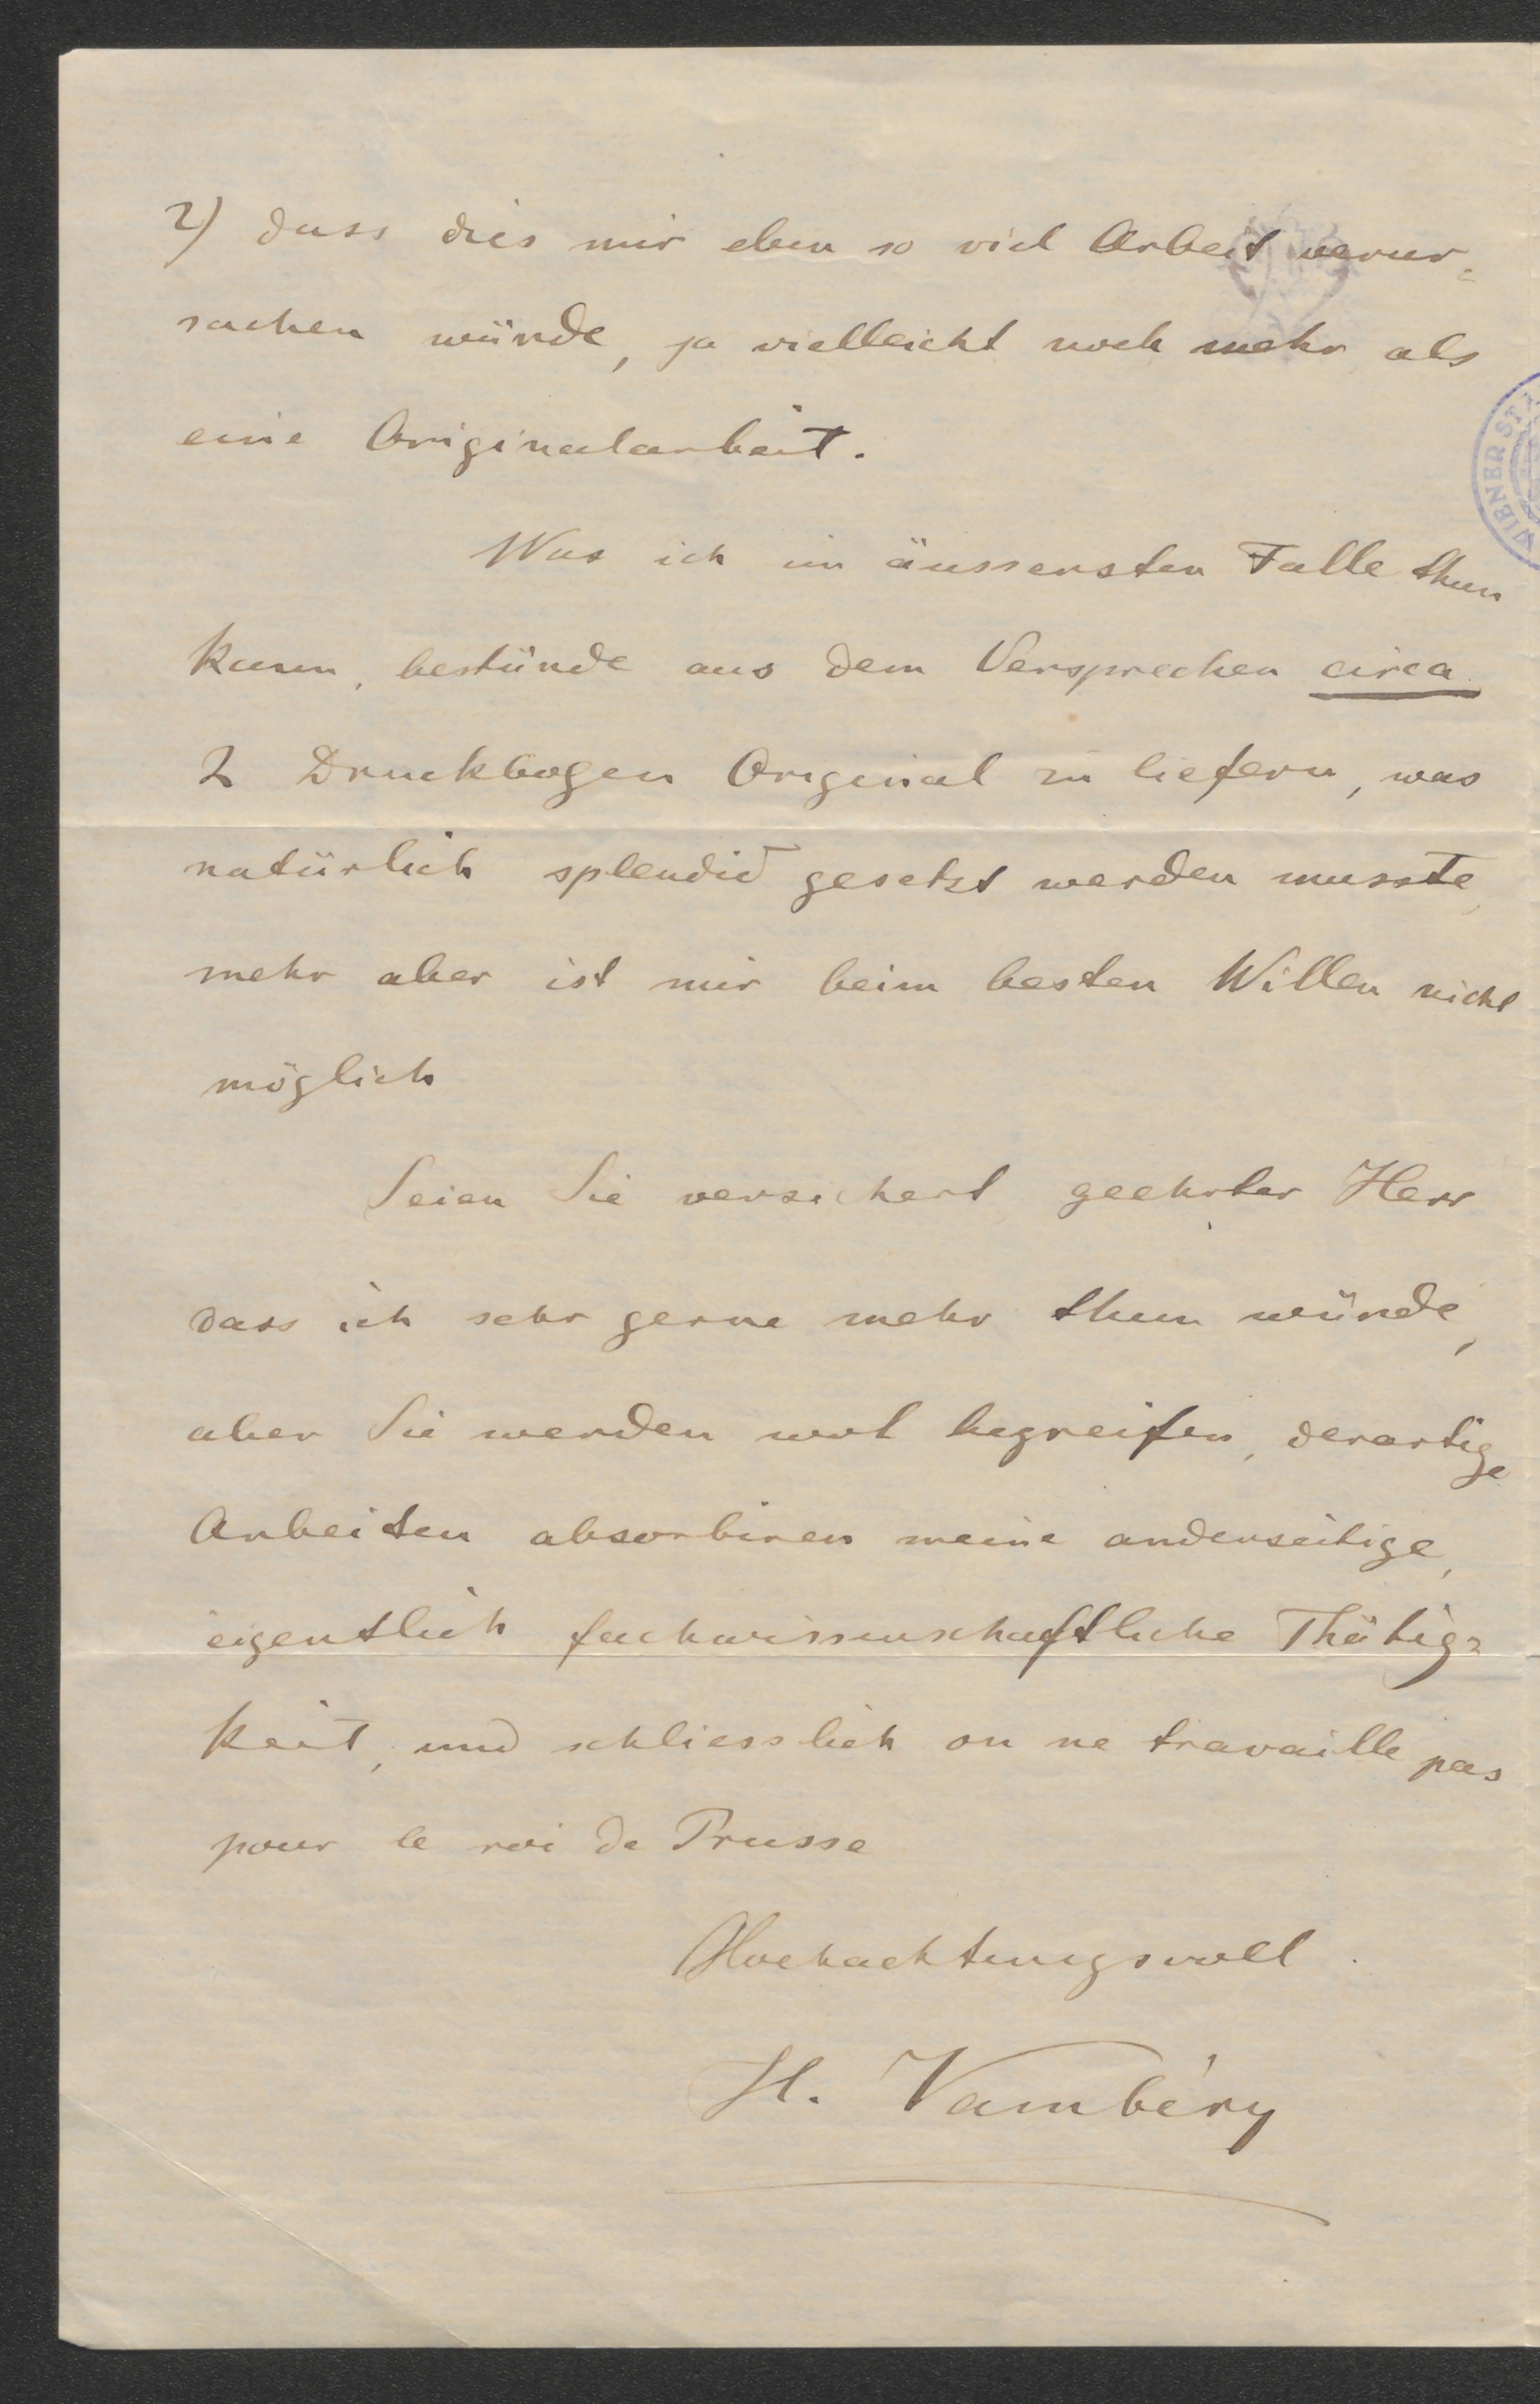 2) dass dies mir eben so viel Arbeit verur=
sachen würde, ja vielleicht noch mehr als
eine Originalarbeit.
Was ich im äussersten Falle thun
kann, bestünde aus dem Versprechen circa
2 Druckbogen Original zu liefern, was
natürlich splendid gesetzt werden musste,
mehr aber ist mir beim besten Willen nicht
möglich
Seien Sie versichert geehrter Herr
dass ich sehr gerne mehr thun würde,
aber Sie werden wol begreifen, derartige
Arbeiten absorbiren meine anderseitige,
eigentlich fachwissenschaftliche Thätig=
keit, und schliesslich on ne travaille pas
pour le roi de Prusse
Hochachtungsvoll
H. Vambéry
WIENER STA